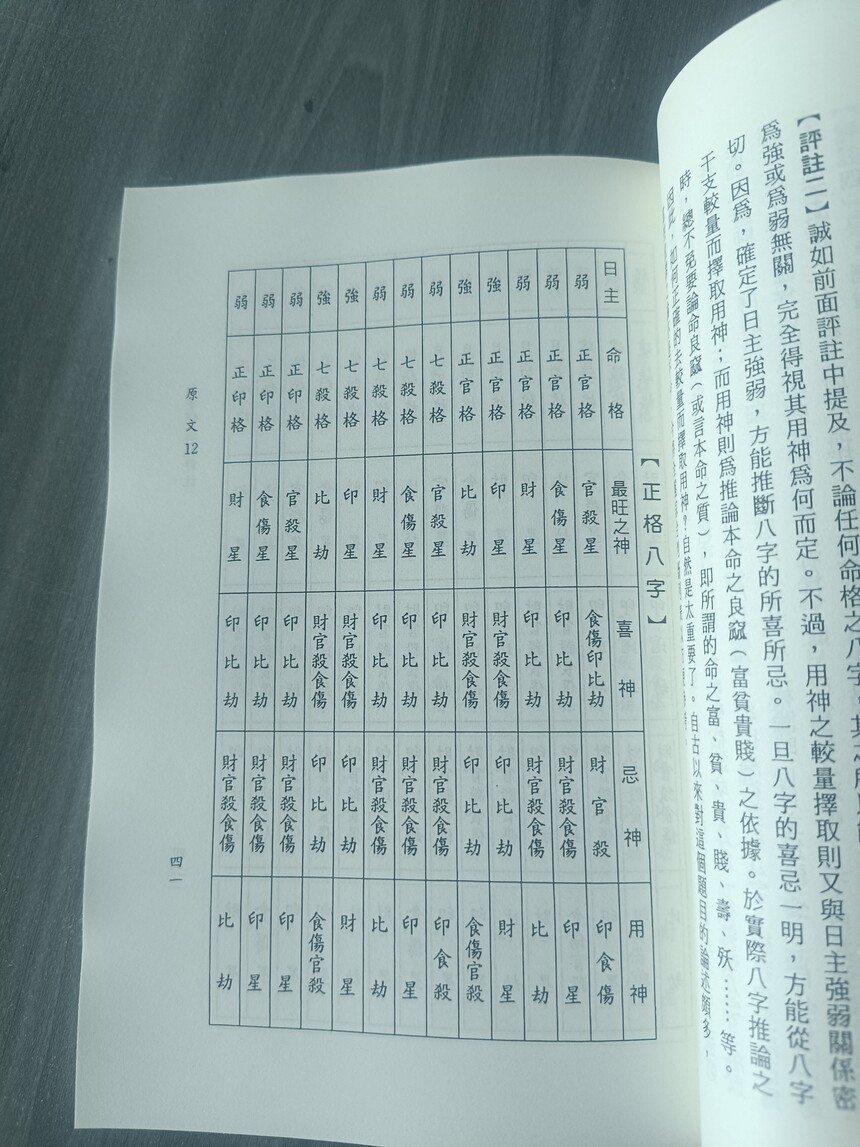 【評註二】誠如前面評註中提及，不論任何命格之八字。其
爲強或爲弱無關，完全得視其用神爲何而定。不過，用神之較量擇取則又與日主強弱關係密
切。因爲，確定了日主強弱，方能推斷八字的所喜所忌。一旦八字的喜忌一明，方能從八字
干支較量而擇取用神；而用神則爲推論本命之良窳（富貧貴賤）之依據。於實際八字推論之
時，總不免要論命良窳（或言本命之質），即所謂的命之富、貧、貴、賤、壽、夭……等。
因此，如何正確的去較量而擇取用神，自然是太重要了。自古以來對這個題目的論述頗多，
【正格八字】
日主 命格 最旺之神 喜神 忌神 用神
弱 正官格 官殺星 食傷印比劫 財官殺 印食傷
弱 正官格 食傷星 印比劫 財官殺食傷 印星
弱 正官格 財星 印比劫 財官殺食傷 比劫
強 正官格 印星 財官殺食傷 印比劫 財星
強 正官格 比劫 財官殺食傷 印比劫 食傷官殺
弱 七殺格 官殺星 印比劫 財官殺食傷 印食殺
弱 七殺格 食傷星 印比劫 財官殺食傷 印星
弱 七殺格 財星 印比劫 財官殺食傷 比劫
強 七殺格 印星 財官殺食傷 印比劫 財星
強 七殺格 比劫 財官殺食傷 印比劫 食傷官殺
弱 正印格 官殺星 印比劫 財官殺食傷 印星
弱 正印格 食傷星 印比劫 財官殺食傷 印星
弱 正印格 財星 印比劫 財官殺食傷 比劫
原文12
四一